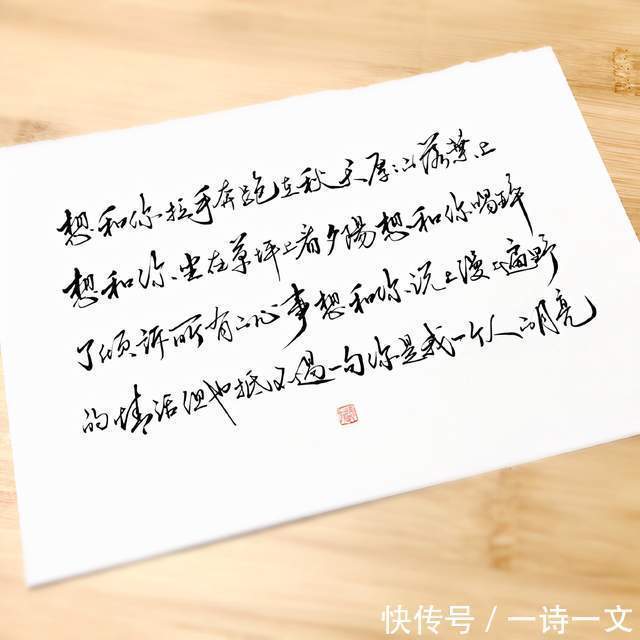 想和你拉手奔跑在秋天厚厚落葉上
想和你坐在草坪上看夕陽想和你喝醉
了倾诉所有心事想和你说上漫山遍野
的情话但也抵不過一句你是我一个人的月亮
快传号 / 一诗一文